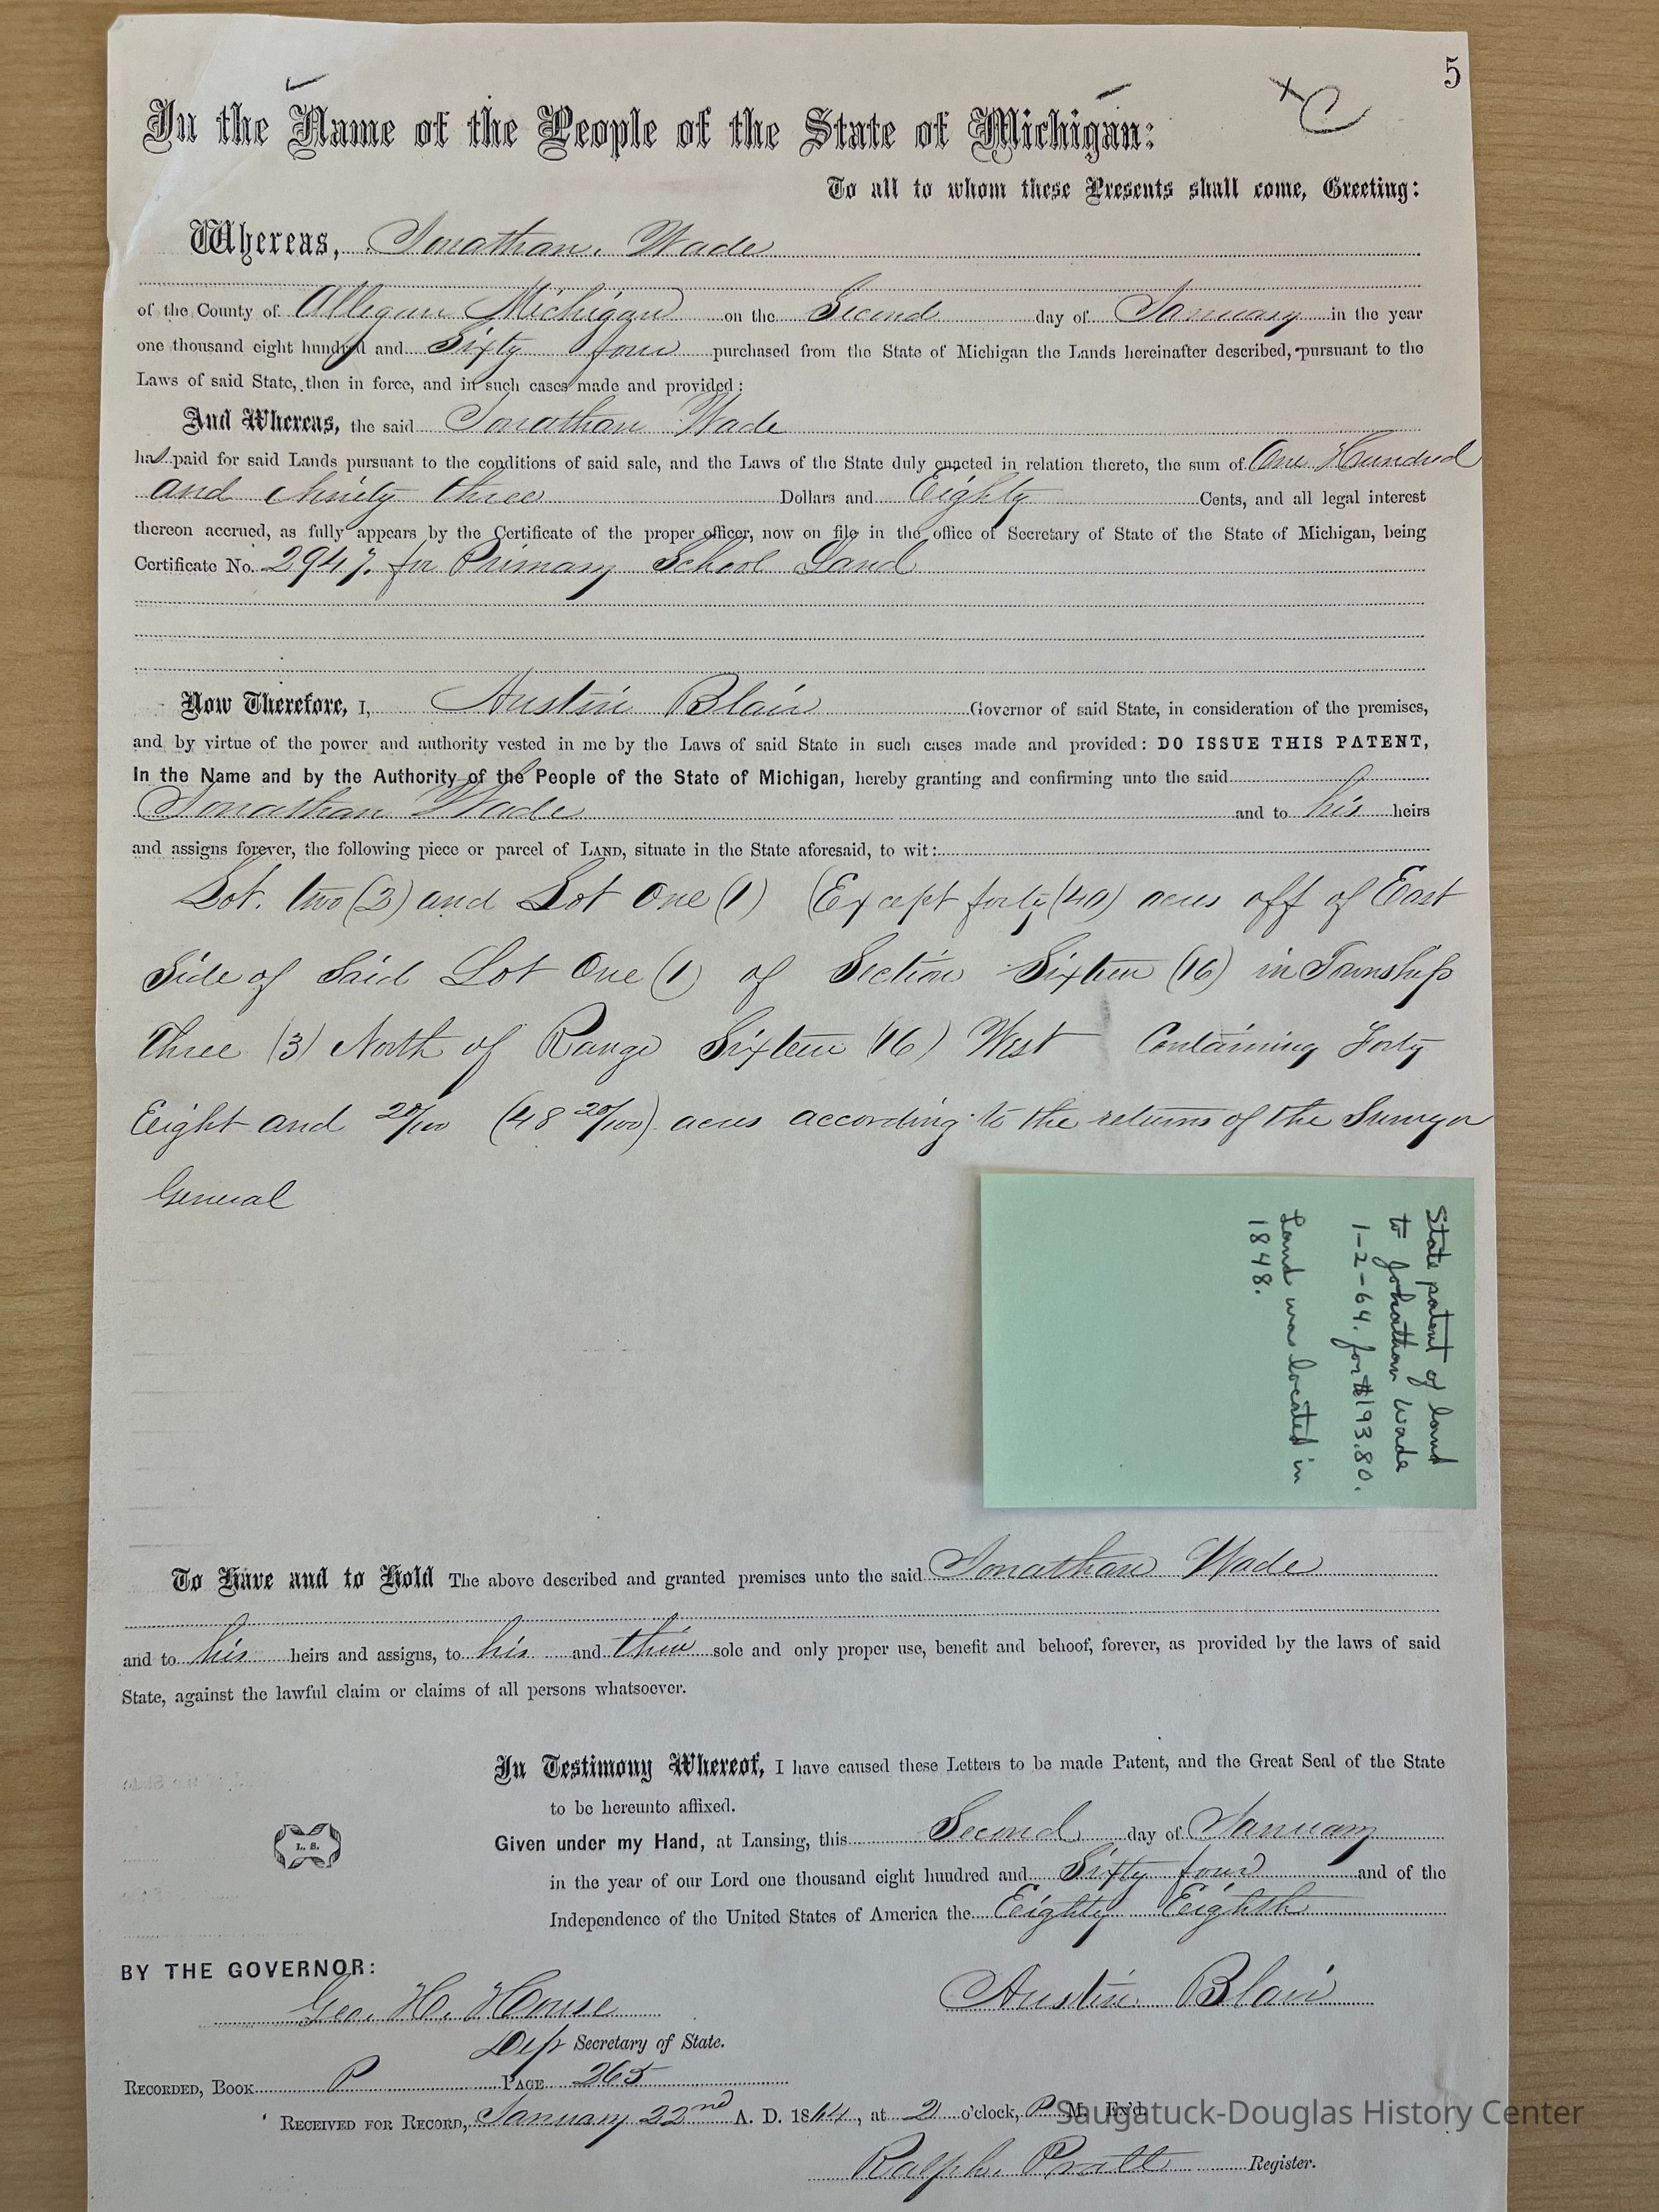 5
+C
In the Name of the People of the State of Michigan:
To all to whom these Presents shall come, Greeting:
Whereas, Jonathan. Wade
of the County of Allegan Michigan on the Second day of January in the year
one thousand eight hundred and Sixty four purchased from the State of Michigan the Lands hereinafter described, pursuant to the
Laws of said State, then in force, and in such cases made and provided:
And Whereas, the said Jonathan Wade
has paid for said Lands pursuant to the conditions of said sale, and the Laws of the State duly enacted in relation thereto, the sum of One Hundred
and Ninety three Dollars and Eighty Cents, and all legal interest
thereon accrued, as fully appears by the Certificate of the proper officer, now on file in the office of Secretary of State of the State of Michigan, being
Certificate No. 2947. for Primary School Land
Now Therefore, I, Austin Blair Governor of said State, in consideration of the premises,
and by virtue of the power and authority vested in me by the Laws of said State in such cases made and provided: DO ISSUE THIS PATENT,
In the Name and by the Authority of the People of the State of Michigan, hereby granting and confirming unto the said
Jonathan Wade and to his heirs
and assigns forever, the following piece or parcel of LAND, situate in the State aforesaid, to wit:
Lot. two (2) and Lot One (1) (Except forty (40) acres off of East
Side of Said Lot One (1) of Section Sixteen (16) in Township
Three (3) North of Range Sixteen (16) West Containing Forty
Eight and 20/100 (48 20/100) acres according to the returns of the Surveyor
General
State patent of land
to Johathan Wade
1-2-64. for $193.80.
Land was located in
1848.
To Have and to Hold The above described and granted premises unto the said Jonathan Wade
and to his heirs and assigns, to his and their sole and only proper use, benefit and behoof, forever, as provided by the laws of said
State, against the lawful claim or claims of all persons whatsoever.
In Testimony Whereof, I have caused these Letters to be made Patent, and the Great Seal of the State
to be hereunto affixed.
L. S.
Given under my Hand, at Lansing, this Second day of January
in the year of our Lord one thousand eight hundred and Sixty four and of the
Independence of the United States of America the Eighty Eighth
BY THE GOVERNOR:
Geo. H. House Austin Blair
Dep Secretary of State.
RECORDED, BOOK P PAGE 265
RECEIVED FOR RECORD, January 22nd A. D. 1864, at 2 o'clock, P M. Ex'd
Saugatuck-Douglas History Center
Ralph. Pratt Register.